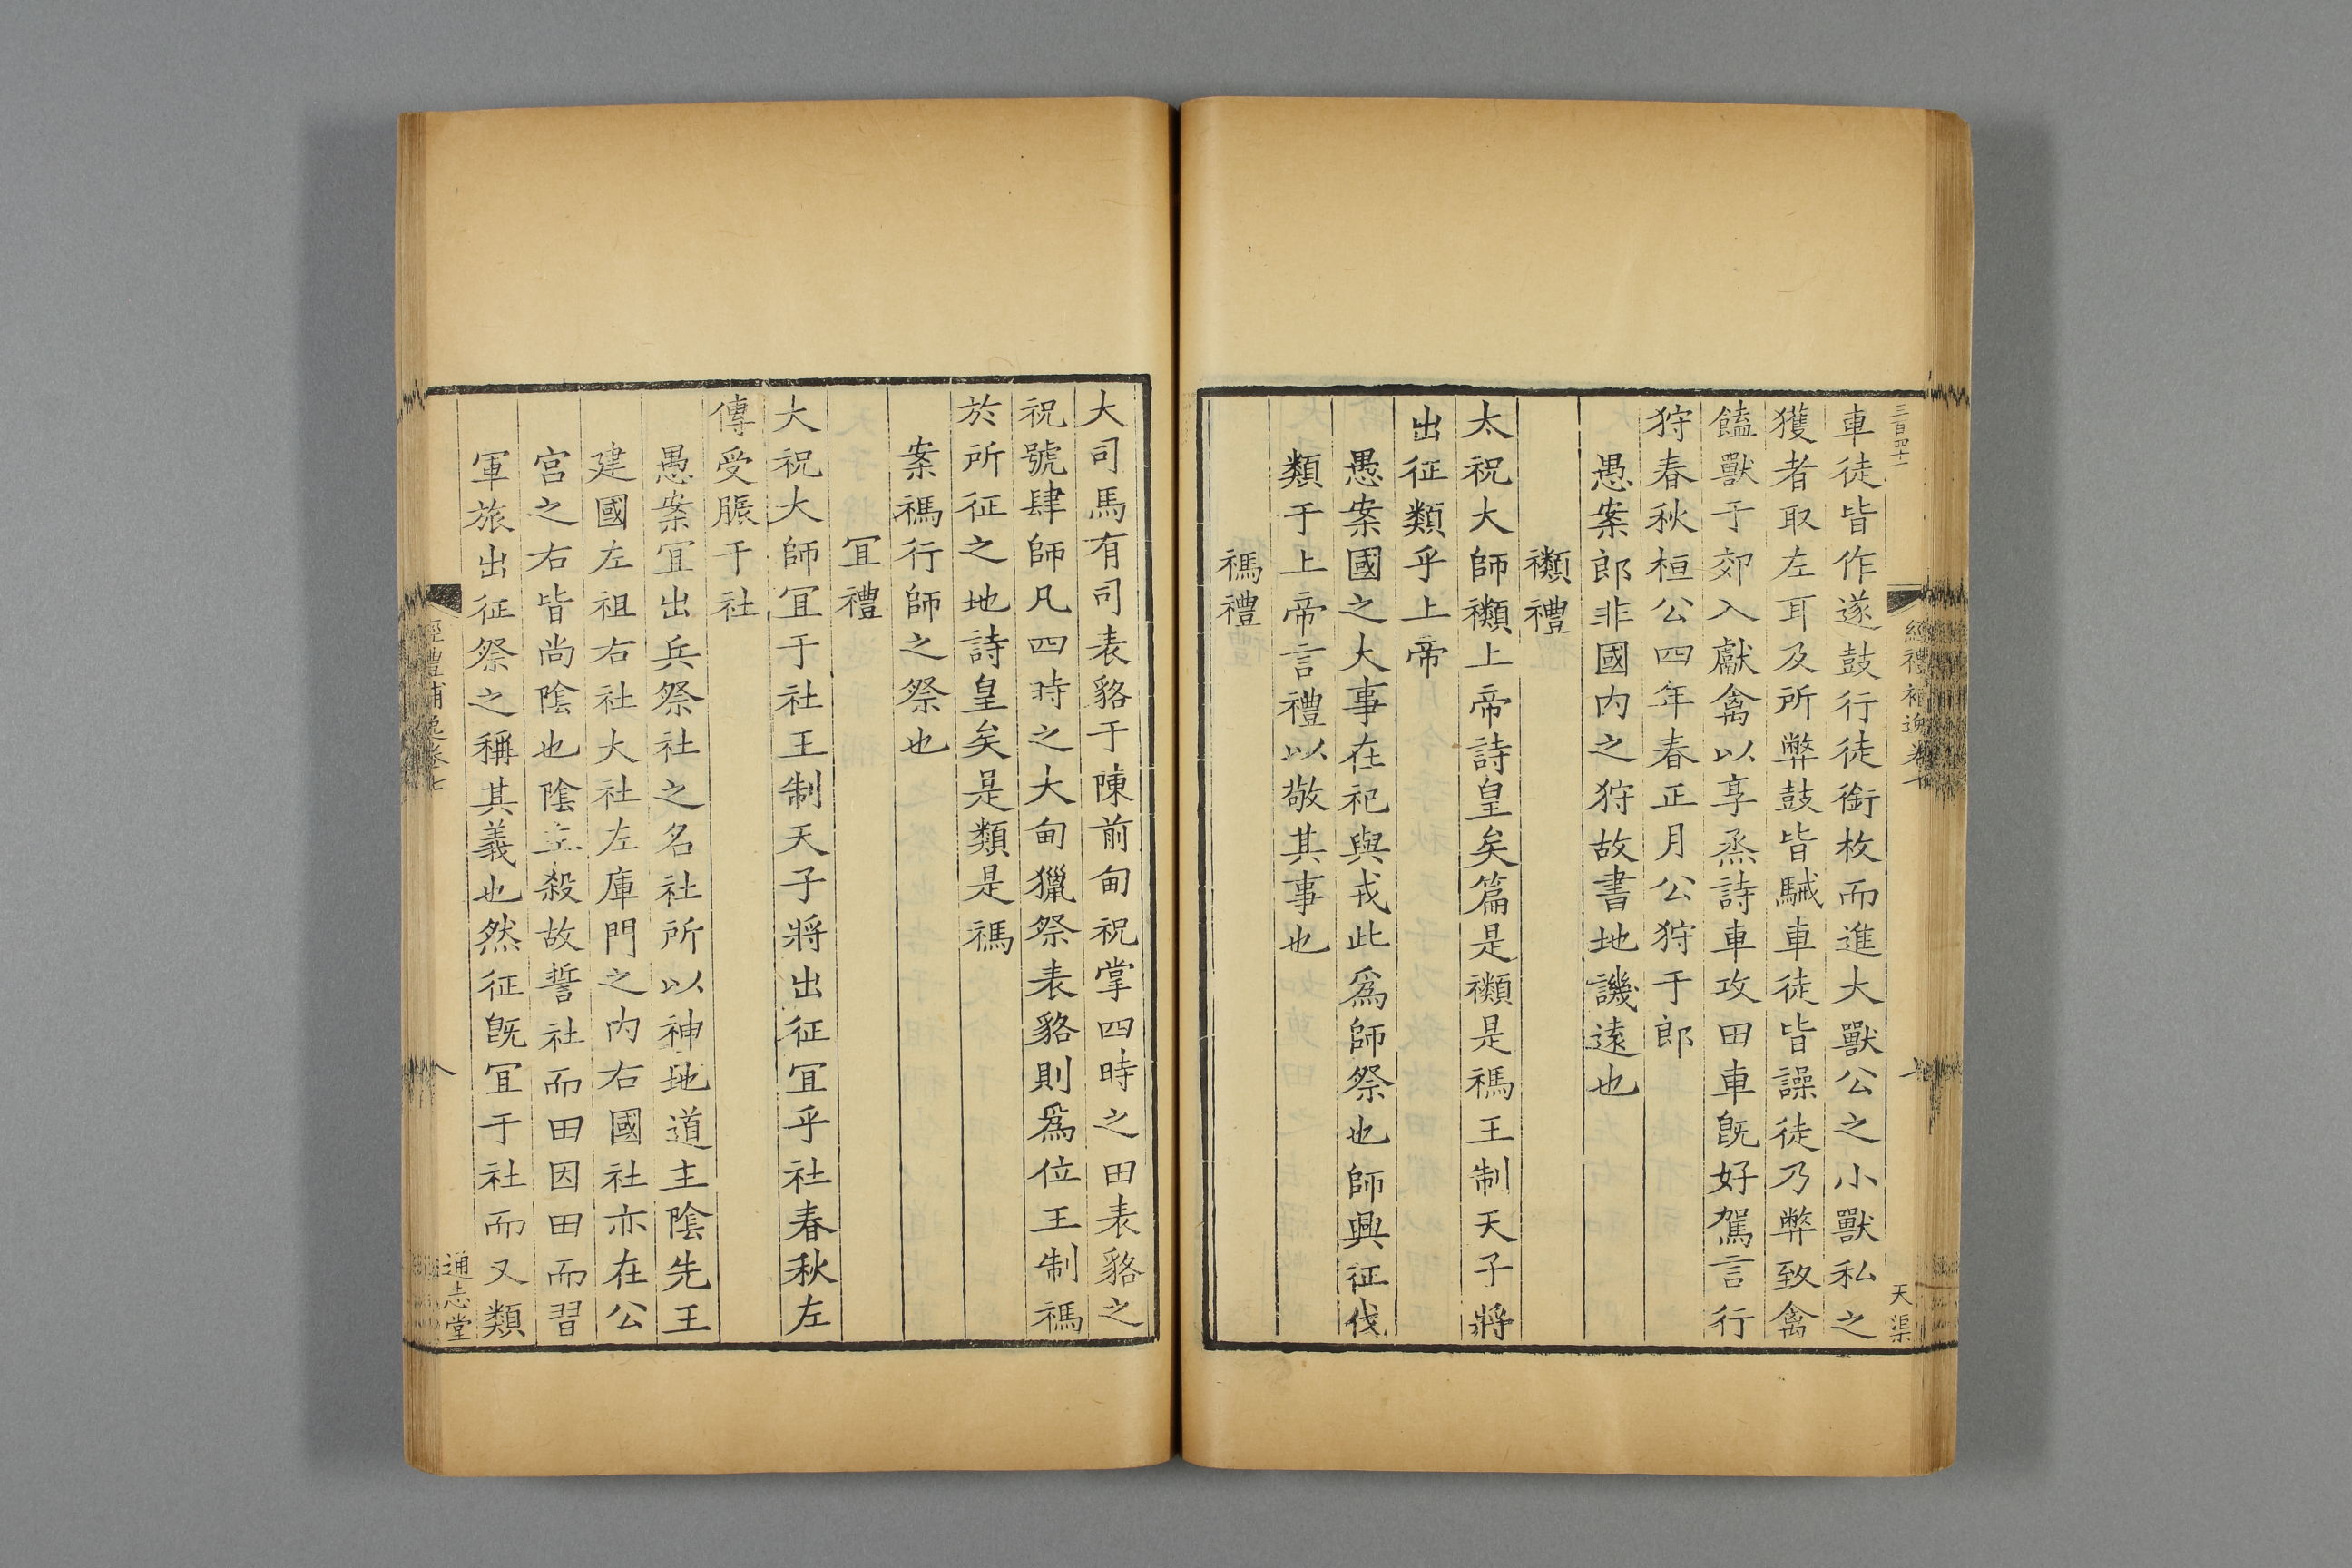 三百四十一
經禮補逸卷七
天渠
車徒皆作遂鼓行徒銜枚而進大獸公之小獸私之
獲者取左耳及所弊鼓皆駴車徒皆譟徒乃弊致禽
饁獸于郊入獻禽以享烝詩車攻田車旣好駕言行
狩春秋桓公四年春正月公狩于郎
愚案郎非國内之狩故書地譏遠也
禷禮
太祝大師禷上帝詩皇矣篇是禷是禡王制天子將
出征類乎上帝
愚案國之大事在祀與戎此爲師祭也師興征伐
類于上帝言禮以敬其事也
禡禮
大司馬有司表貉于陳前甸祝掌四時之田表貉之
祝號肆師凡四時之大甸獵祭表貉則爲位王制禡
於所征之地詩皇矣是類是禡
案禡行師之祭也
冝禮
大祝大師冝于社王制天子將出征冝乎社春秋左
傳受脤于社
愚案冝出兵祭社之名社所以神地道主陰先王
建國左祖右社大社左庫門之内右國社亦在公
宮之右皆尚陰也陰主殺故誓社而田因田而習
軍旅出征祭之稱其義也然征旣冝于社而又類
經禮補逸卷七
八
通志堂